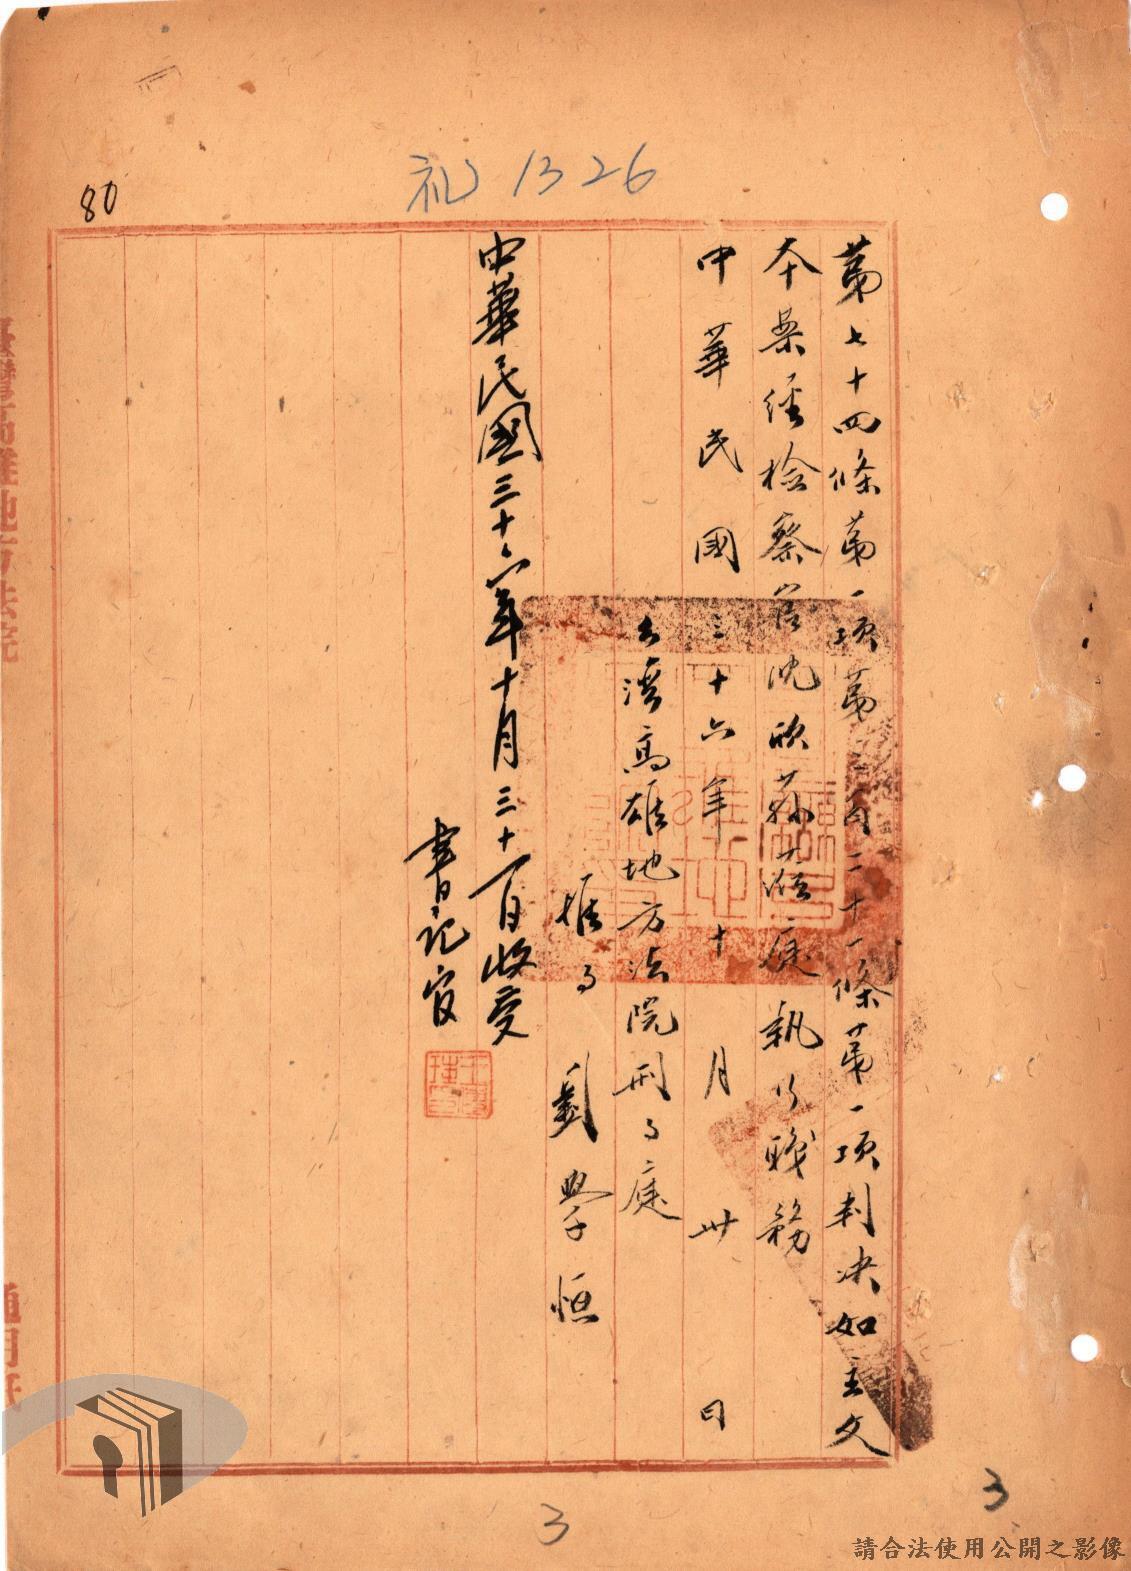 礼 1326
80
第七十四條第一項第三百二十一條第一項判決如主文
本案經檢察官沈欣蓀蒞庭執行職務
中華民國三十六年十月卅日
台湾高雄地方法院刑事庭
推事 劉學恒
中華民國三十六年十月三十一日收受
書記官
臺灣高雄地方法院
通用紙
3
3
請合法使用公開之影像